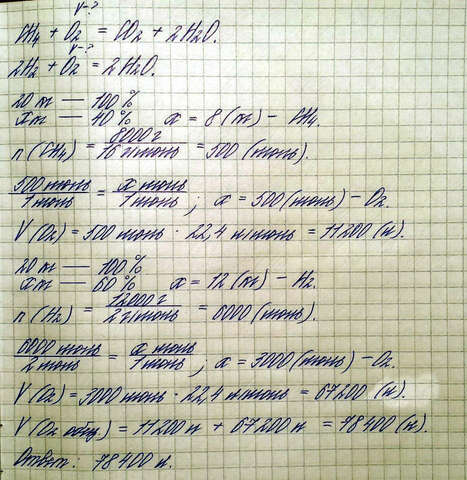 V-?
CH4 + O2 = CO2 + 2H2O.
V-?
2H2 + O2 = 2H2O.
20 кг — 100%
x кг — 40%   x = 8 (кг) - CH4.
n (CH4) = 8000 г / 16 г/моль = 500 (моль).
500 моль / 1 моль = x моль / 1 моль ; x = 500 (моль) - O2.
V (O2) = 500 моль · 22,4 л/моль = 11200 (л).
20 кг — 100%
x кг — 60%   x = 12 (кг) - H2.
n (H2) = 12000 г / 2 г/моль = 6000 (моль).
6000 моль / 2 моль = x моль / 1 моль ; x = 3000 (моль) - O2.
V (O2) = 3000 моль · 22,4 л/моль = 67200 (л).
V (O2 общ.) = 11200 л + 67200 л = 78400 (л).
Ответ: 78400 л.